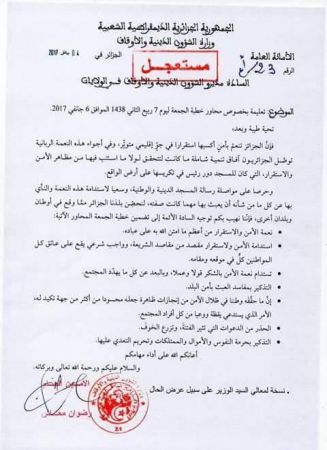 الجمهورية الجزائرية الديمقراطية الشعبية
وزارة الشؤون الدينية والأوقاف
الأمانة العامة
الجزائر في 04 جانفي 2017
الرقم 23/أ ع
مستعجل
السادة مديرو الشؤون الدينية والأوقاف في الولايات
الموضوع: تعليمة بخصوص محاور خطبة الجمعة ليوم 7 ربيع الثاني 1438 الموافق 6 جانفي 2017.
تحية طيبة وبعد،
فإنّ الجزائر تنعم بأمن أكسبها استقرارا في جوّ إقليمي متوتّر، وفي أجواء هذه النعمة الربانية
توصّل الجزائريون آفاق تنمية شاملة ما كانت لتتحقق لولا ما استتب فيها من مظاهر الأمن
والاستقرار، التي كان للمسجد دور رئيس في تكريسها على أرض الواقع.
وحرصا على مواصلة رسالة المسجد الدينية والوطنية، وسعيا لاستدامة هذه النعمة والنأي
بها عن كل ما من شأنه أن يعبث بها مهما كانت صفته، لتحصّن بلدنا الجزائر ممّا وقع في أوطان
وبلدان أخرى، فإننا نهيب بكم توجيه السادة الأئمة إلى تضمين خطبة الجمعة المحاور الآتية:
• نعمة الأمن والاستقرار من أعظم ما امتن الله به على عباده.
• استدامة الأمن والاستقرار مقصد من مقاصد الشريعة، وواجب شرعي يقع على عاتق كل
المواطنين كلّ في موقعه ومقامه.
• تستدام نعمة الأمن بالشكر قولا وعملا، وبالبعد عن كل ما يهدّد المجتمع.
• التذكير بمفاسد العبث بأمن البلد.
• إنّ ما حقّقه وطننا في ظلال الأمن من إنجازات ظاهرة جعله محسودا من أكثر من جهة تكيد له،
الأمر الذي يستدعي يقظة ووعيا من كل أفراد المجتمع.
• الحذر من الدعوات التي تثير الفتنة، وتزرع الخوف.
• التذكير بحرمة النفوس والأموال والممتلكات وتحريم التعدي عليها.
أعانكم الله على أداء مهامكم
والسلام عليكم ورحمة الله تعالى وبركاته.
الأمين العام
- نسخة لمعالي السيد الوزير على سبيل عرض الحال